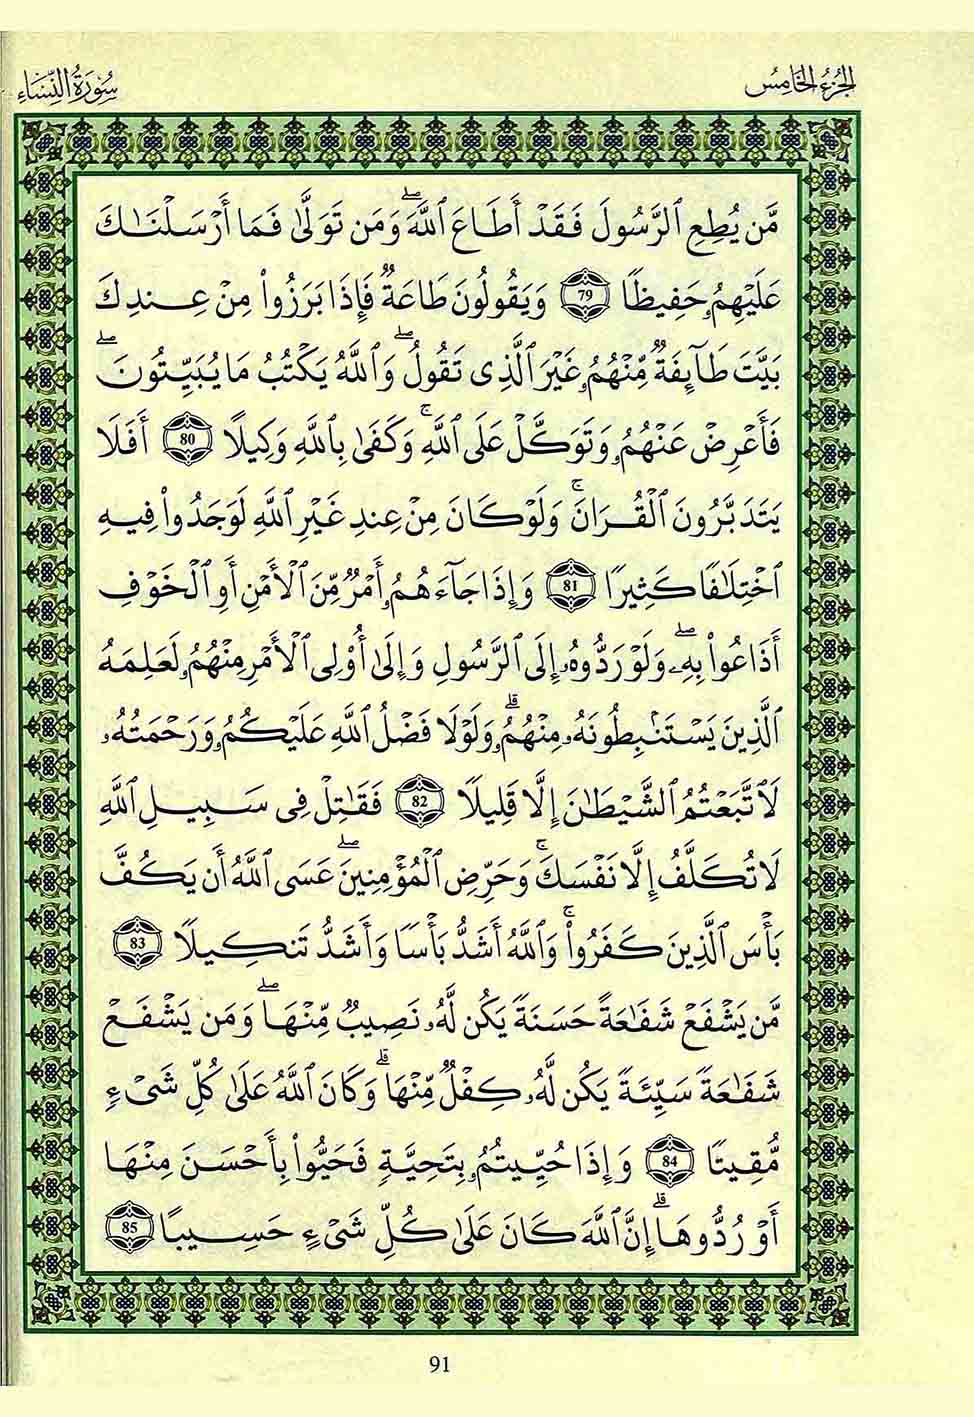 الجزء الخامس
سورة النساء
مَّن يُطِعِ اِ۬لرَّسُولَ فَقَدْ أَطَاعَ اَ۬للَّهَۖ وَمَن تَوَلَّىٰ فَمَا أَرْسَلْنَٰكَ
عَلَيْهِمُۥ حَفِيظًا 79 وَيَقُولُونَ طَاعَةٌ فَإِذَا بَرَزُوا۟ مِنْ عِندِكَ
بَيَّتَ طَآئِفَةٌ مِّنْهُمُۥ غَيْرَ اَ۬لَّذِى تَقُولُۖ وَاَللَّهُ يَكْتُبُ مَا يُبَيِّتُونَۖ
فَأَعْرِضْ عَنْهُمُۥ وَتَوَكَّلْ عَلَى اَ۬للَّهِۚ وَكَفَىٰ بِاللَّهِ وَكِيلًا 80 أَفَلَا
يَتَدَبَّرُونَ اَ۬لْقُرَانَۚ وَلَوْ كَانَ مِنْ عِندِ غَيْرِ اِ۬للَّهِ لَوَجَدُوا۟ فِيهِ
اِ۪خْتِلَٰفًا كَثِيرًا 81 وَإِذَا جَآءَهُمُۥ أَمْرٌ مِّنَ اَ۬لْأَمْنِ أَوِ اِ۬لْخَوْفِ
أَذَاعُوا۟ بِهِۦۖ وَلَوْ رَدُّوهُۥ إِلَى اَ۬لرَّسُولِ وَإِلَىٰ أُو۟لِى اِ۬لْأَمْرِ مِنْهُمُۥ لَعَلِمَهُ
اُ۬لَّذِينَ يَسْتَنۢبِطُونَهُۥ مِنْهُمُۥۗ وَلَوْلَا فَضْلُ اُ۬للَّهِ عَلَيْكُمُۥ وَرَحْمَتُهُۥ
لَاَتَّبَعْتُمُ اُ۬لشَّيْطَٰنَ إِلَّا قَلِيلًا 82 فَقَٰتِلْ فِى سَبِيلِ اِ۬للَّهِ
لَا تُكَلَّفُ إِلَّا نَفْسَكَۚ وَحَرِّضِ اِ۬لْمُؤْمِنِينَۖ عَسَى اَ۬للَّهُ أَن يَكُفَّ
بَأْسَ اَ۬لَّذِينَ كَفَرُوا۟ۚ وَاَللَّهُ أَشَدُّ بَأْسًا وَأَشَدُّ تَنكِيلًا 83
مَّن يَشْفَعْ شَفَٰعَةً حَسَنَةً يَكُن لَّهُۥ نَصِيبٌ مِّنْهَاۖ وَمَن يَشْفَعْ
شَفَٰعَةً سَيِّئَةً يَكُن لَّهُۥ كِفْلٌ مِّنْهَاۗ وَكَانَ اَ۬للَّهُ عَلَىٰ كُلِّ شَىْءٍ
مُّقِيتًا 84 وَإِذَا حُيِّيتُمُۥ بِتَحِيَّةٍ فَحَيُّوا۟ بِأَحْسَنَ مِنْهَا
أَوْ رُدُّوهَاۗ إِنَّ اَ۬للَّهَ كَانَ عَلَىٰ كُلِّ شَىْءٍ حَسِيبًا 85
91